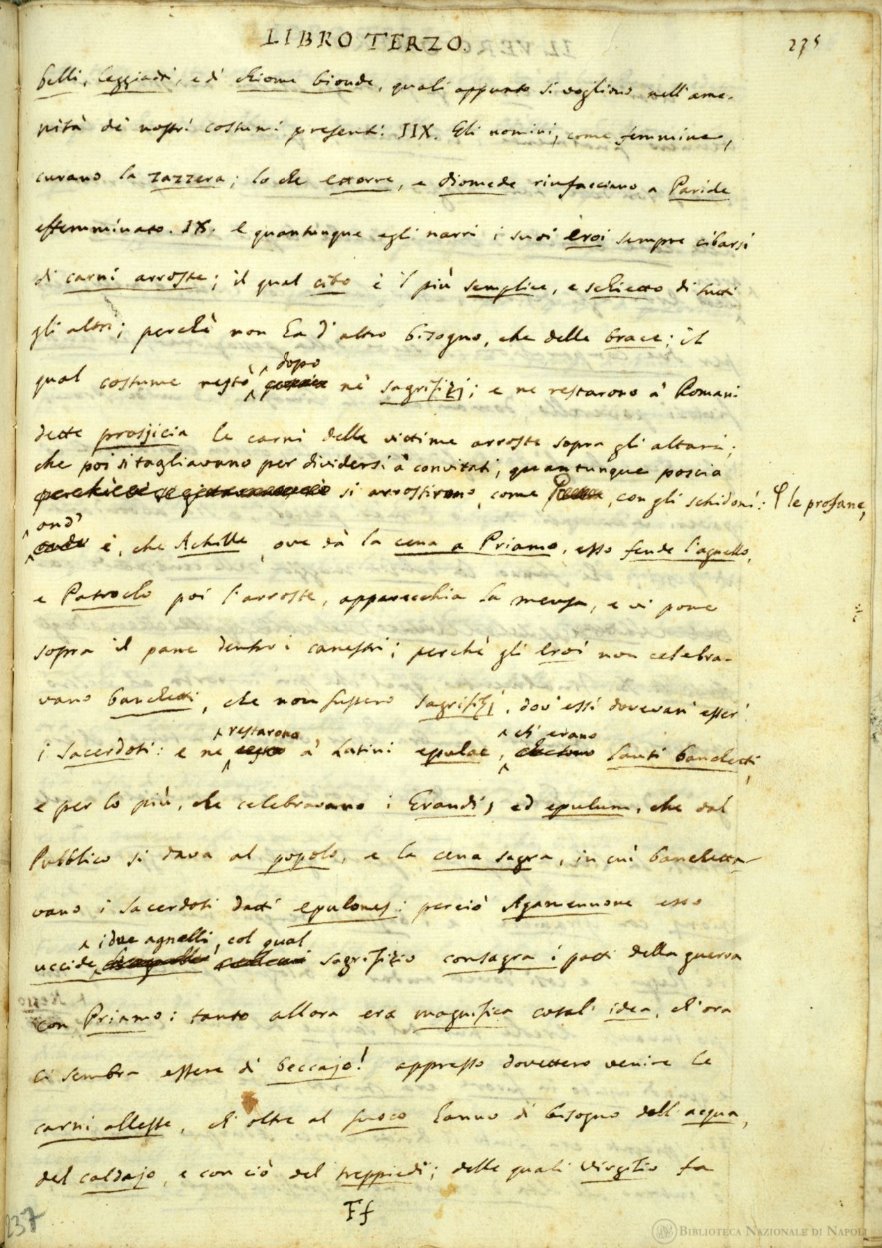 LIBRO TERZO.
235
belli, leggiadri, e di chiome bionde, quali appunto si vogliono nell'ame-
nità de' nostri costumi presenti. IIX. Gli uomini, come femmine,
curano la zazzera; lo che Ettorre, e Diomede rinfacciano a Paride
effemminato. IX. E quantunque egli narri i suoi Eroi sempre cibarsi
di carni arroste; il qual cibo è 'l più semplice, e schietto di tutti
gli altri; perchè non ha d'altro bisogno, che delle brace; il
qual costume restò dopo ne' sagrifizj; e ne restarono a' Romani
dette prosjicia le carni delle vittime arroste sopra gli altari;
che poi si tagliavano per dividersi a' convitati, quantunque poscia
si arrostirono, come le profane, con gli schidoni:
ond' è, che Achille, ove dà la cena a Priamo, esso fende l'agnello,
e Patroclo poi l'arroste, apparecchia la mensa, e vi pone
sopra il pane dentro i canestri; perchè gli Eroi non celebra-
vano banchetti, che non fussero sagrifizj, dov' essi dovevan' esser'
i Sacerdoti: e ne restarono a' Latini epulae, ch' erano lauti banchetti,
e per lo più, che celebravano i Grandi; ed epulum, che dal
Pubblico si dava al popolo, e la cena sagra, in cui banchetta-
vano i Sacerdoti detti epulones: perciò Agamennone esso
uccide i due agnelli, col qual sagrifizio consagra i patti della guerra
con Priamo: tanto allora era magnifica cotal' idea, ch'ora
ci sembra essere di beccajo! appresso dovettero venire le
carni allesse, ch'oltre al fuoco hanno di bisogno dell'acqua,
del caldajo, e con ciò del treppiedi; delle quali Virgilio fa
Ff
237
BIBLIOTECA NAZIONALE DI NAPOLI